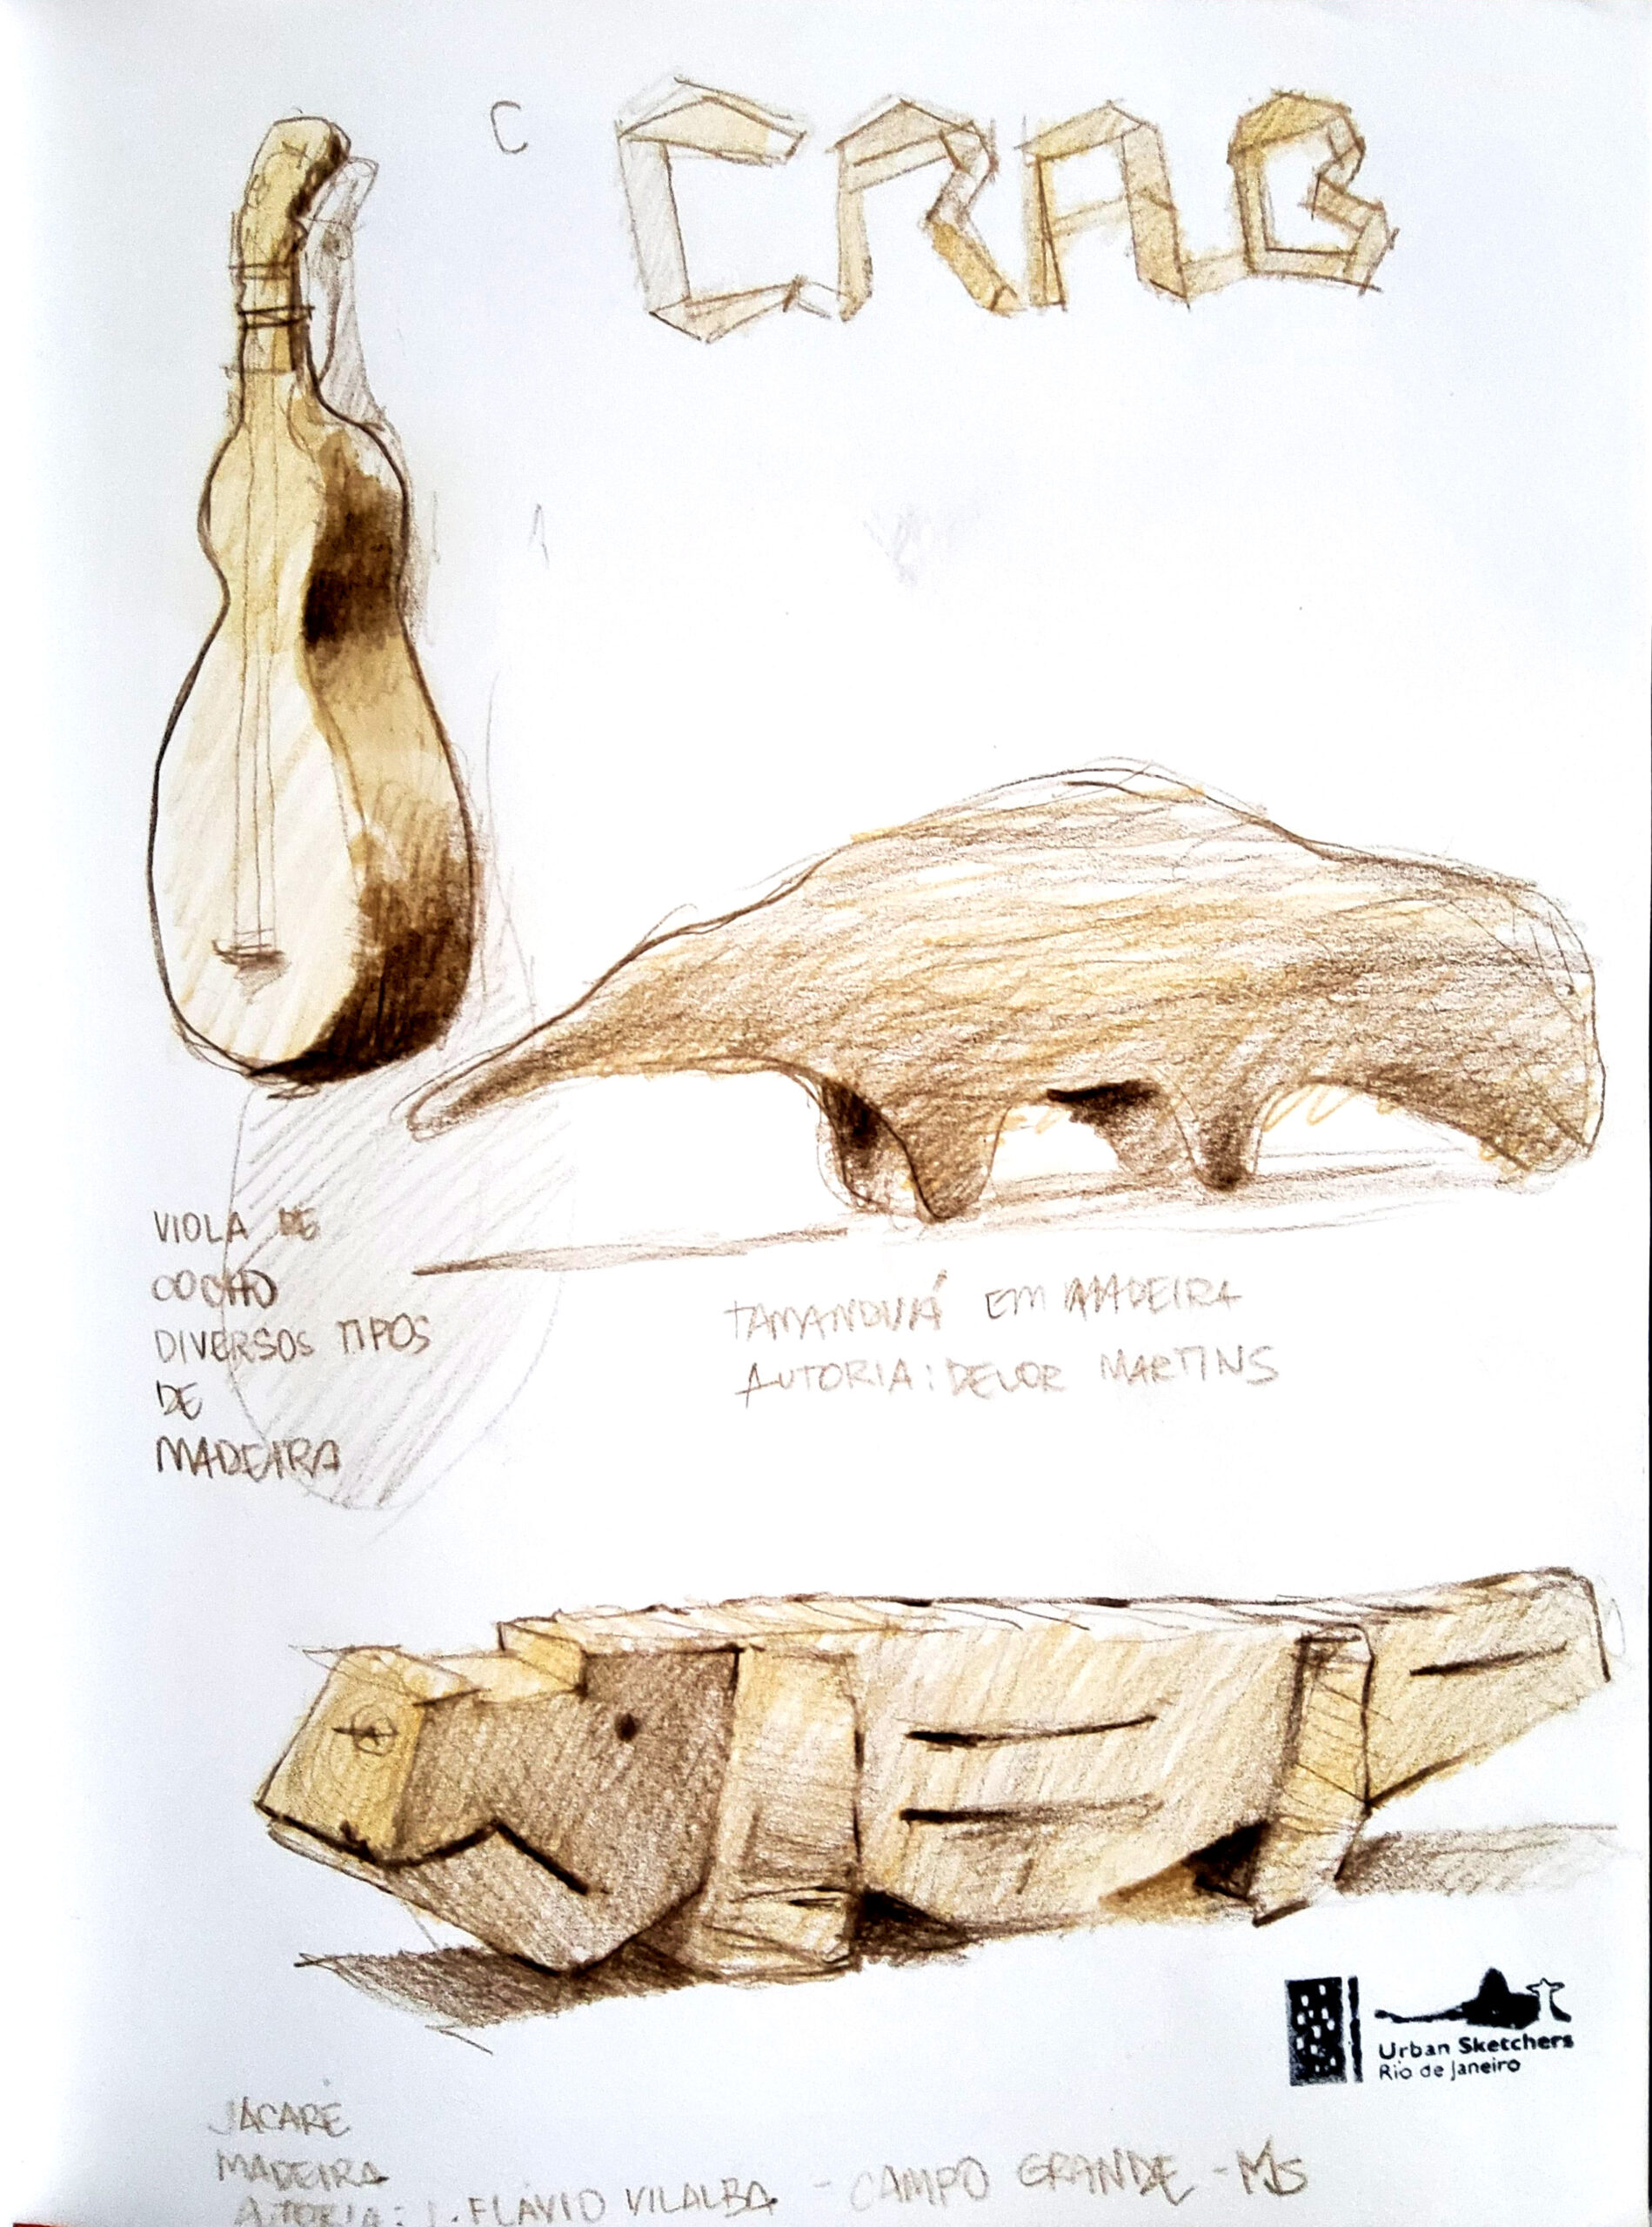 C
CRAB
VIOLA DE
COCHO
DIVERSOS TIPOS
DE
MADEIRA
TAMANDUÁ EM MADEIRA
AUTORIA: DELOR MARTINS
Urban Sketchers
Rio de Janeiro
JACARÉ
MADEIRA
AUTORIA: J. FLÁVIO VILALBA - CAMPO GRANDE - MS